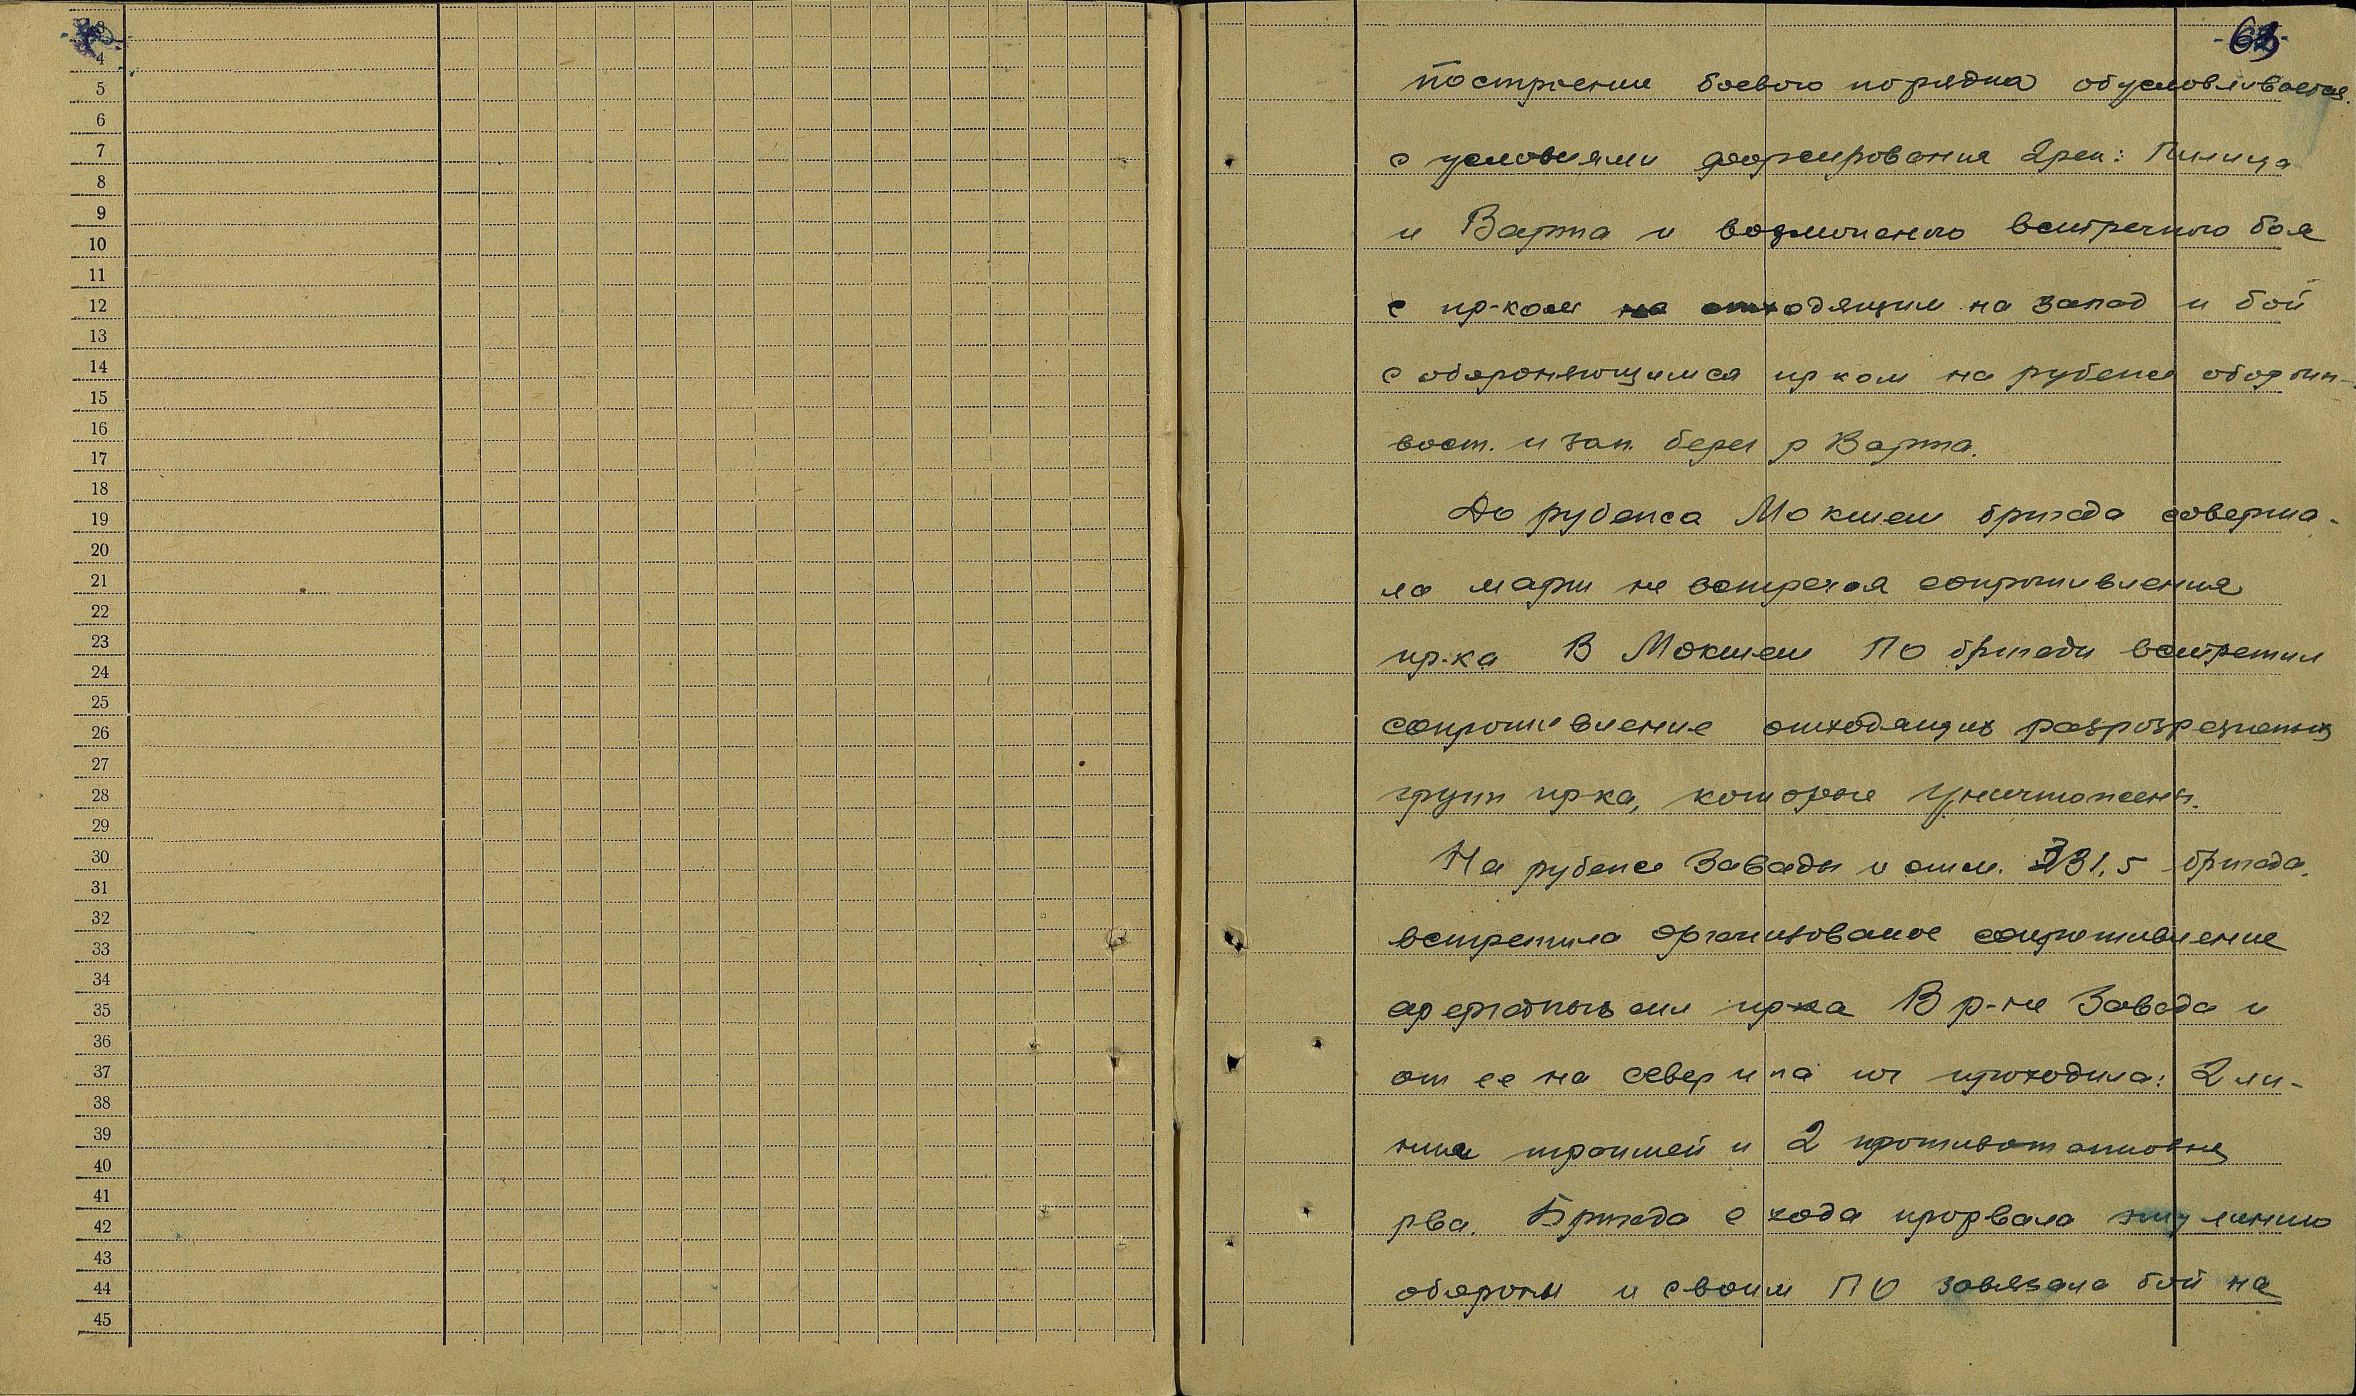 63
3
4
5
6
7
8
9
10
11
12
13
14
15
16
17
18
19
20
21
22
23
24
25
26
27
28
29
30
31
32
33
34
35
36
37
38
39
40
41
42
43
44
45
Построение боевого порядка обусловливается
с условиями форсирования 2 рек: Пилица
и Варта и возможного встречного боя
с пр-ком отходящим на запад и бой
с обороняющимся пр ком на рубеже
вост. и зап. берег р Варта.
До рубежа Мокшем бригада соверша-
ла марш не встречая сопротивления
пр-ка В Мокшем ПО бригады встретил
сопротивление отходящих разрозненных
групп пр-ка, которые уничтожены.
На рубеже Завады и отм. 331,5 бригада
встретила организованое сопротивление
пр-ка В р-не Завада и
от ее на север и на юг проходила: 2 ли-
нии траншей и 2 противотанковых
рва. Бригада с хода прорвала эту линию
обороны и своим ПО завязала бой на